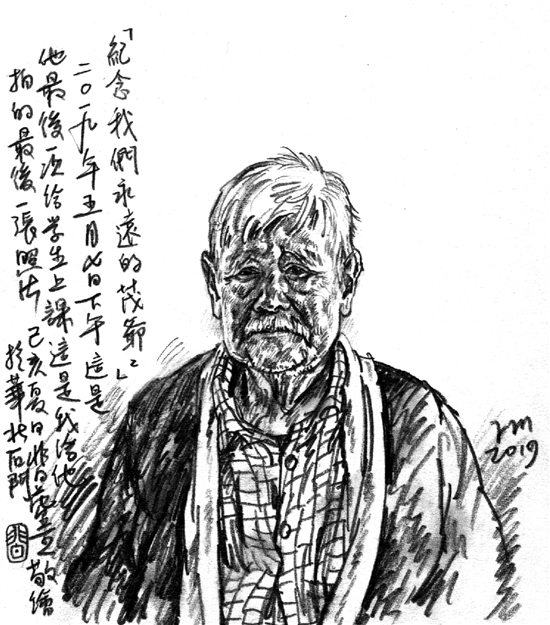 「紀念我們永遠的茂爺」
二〇一九年五月七日下午這是
他最後一次给学生上課這是我给他
拍的最後一張照片
己亥夏日
敬繪
於華北石門
2019